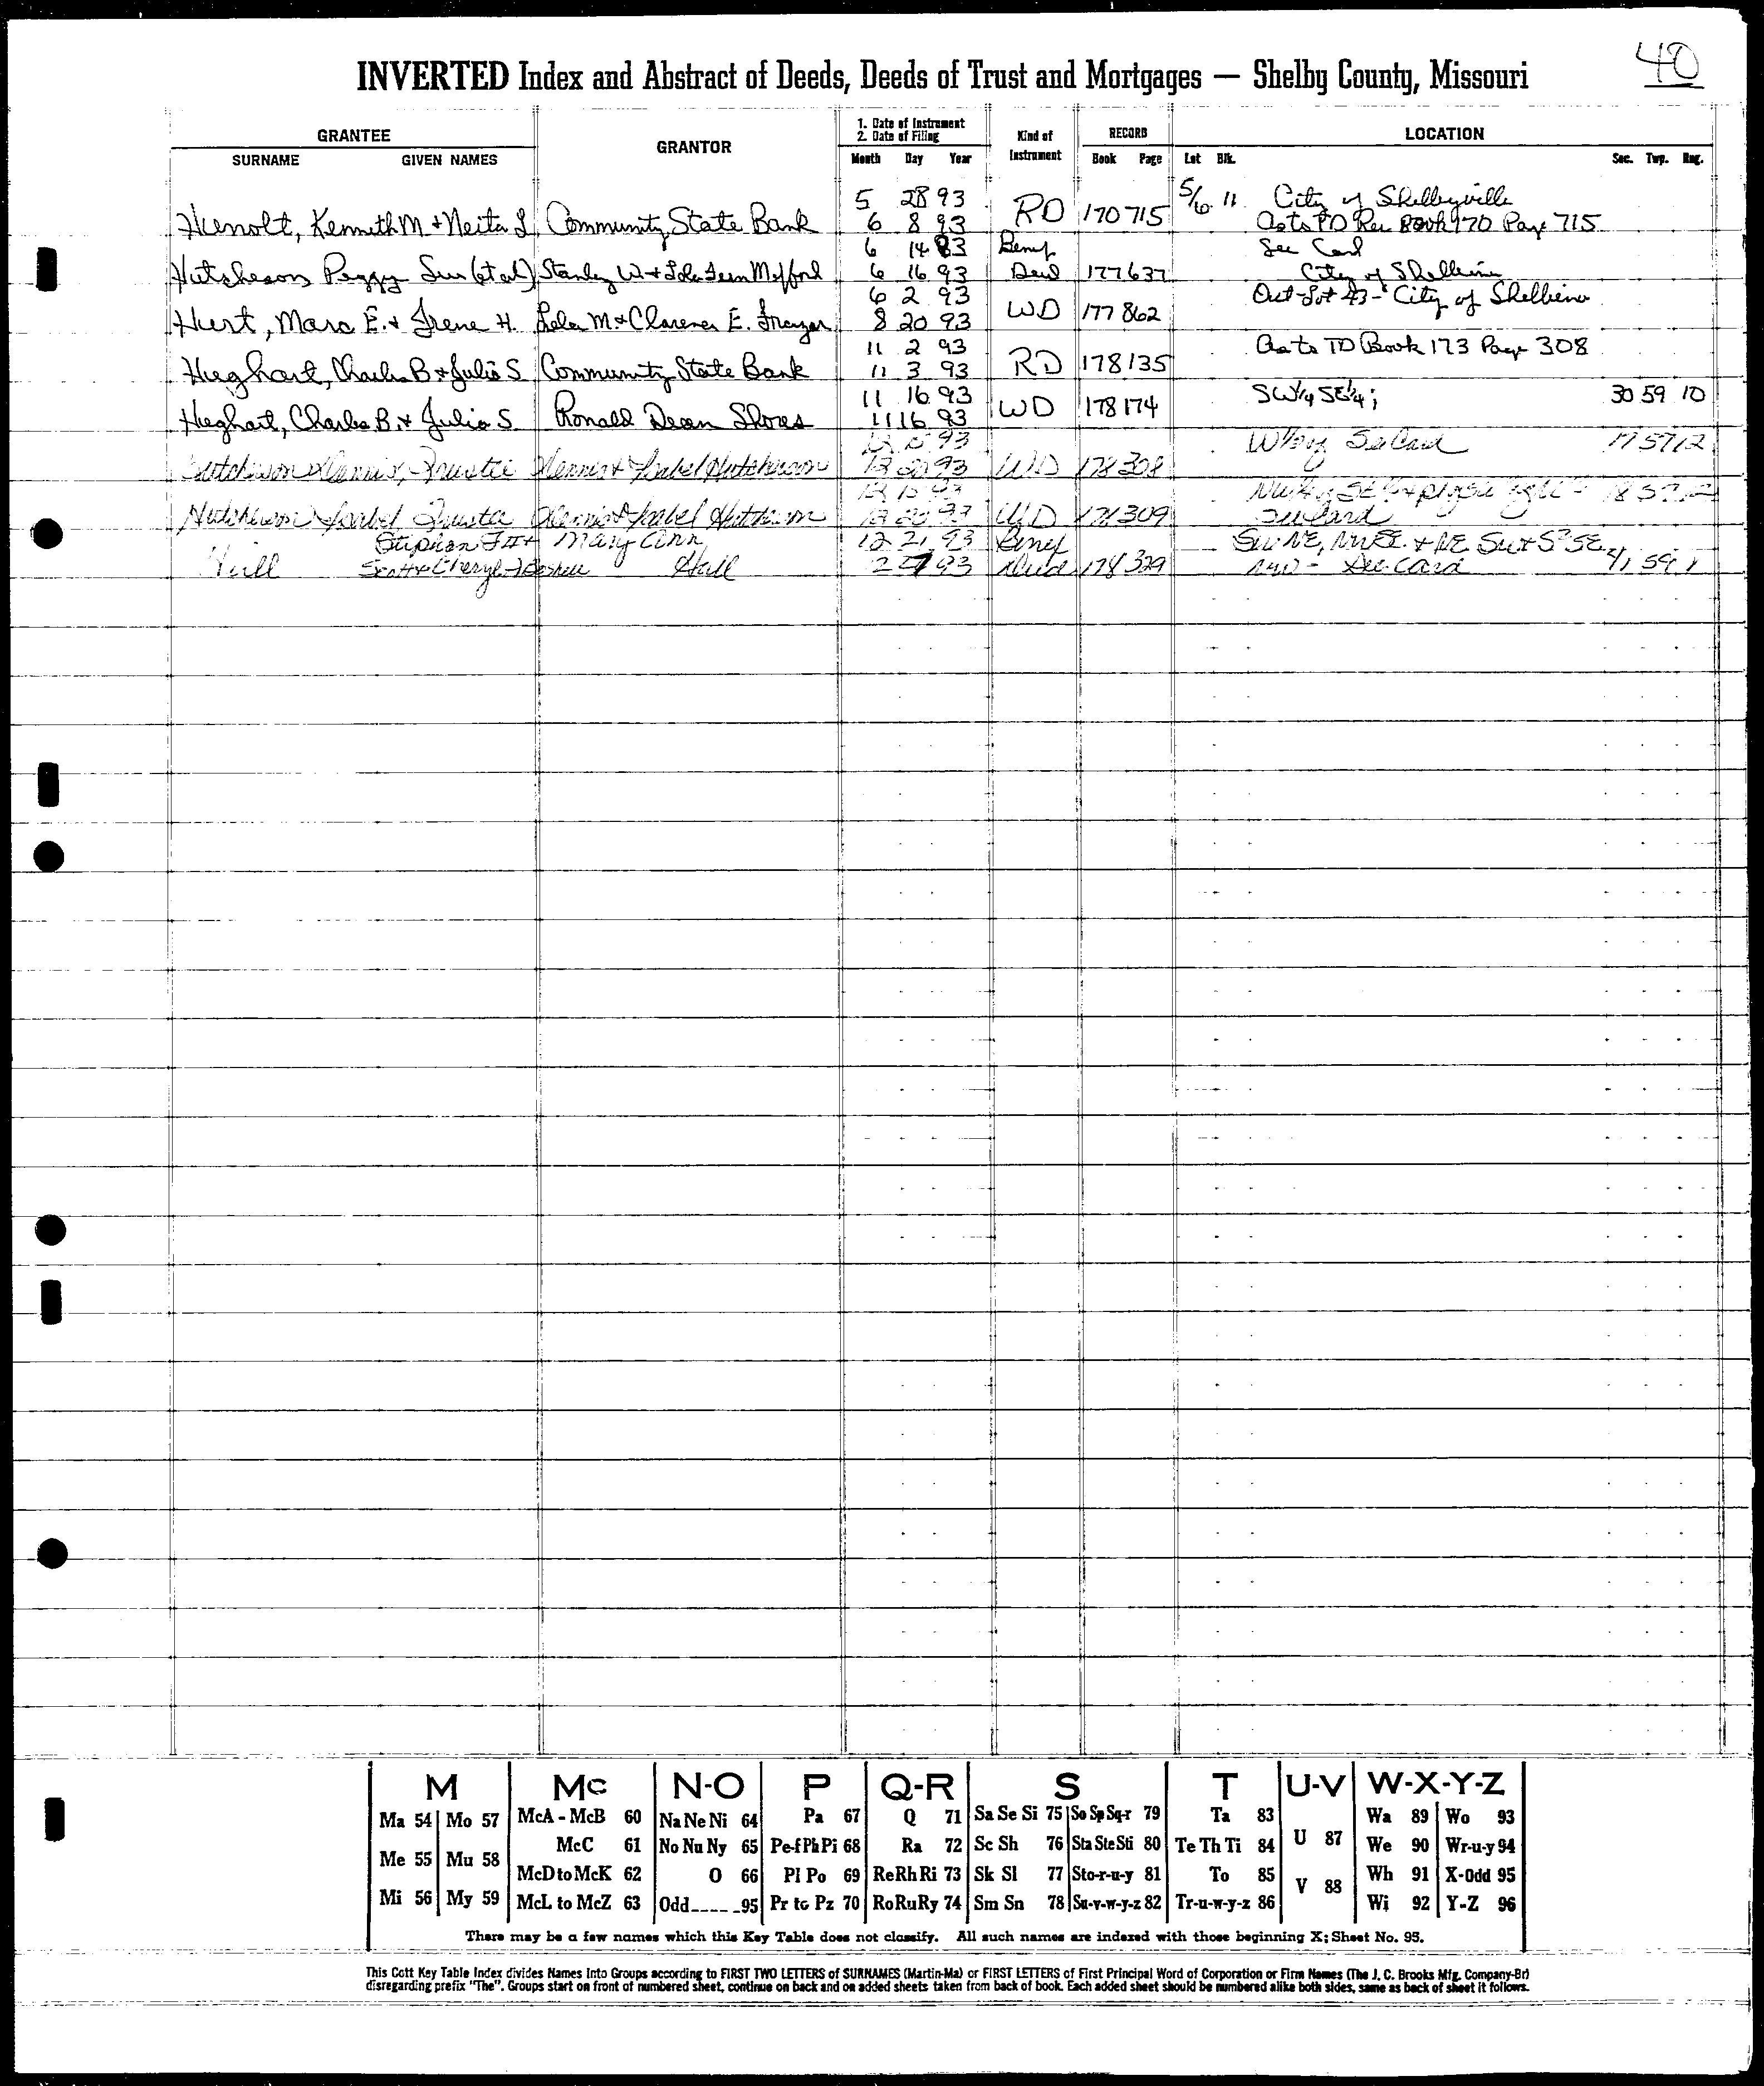 40
INVERTED Index and Abstract of Deeds, Deeds of Trust and Mortgages — Shelby County, Missouri
GRANTEE
SURNAME GIVEN NAMES
GRANTOR
1. Date of Instrument
2. Date of Filing
Month Day Year
Kind of Instrument
RECORD
Book Page
LOCATION
Lot Blk. Sec. Twp. Rng.
5 28 93 5/6 11 City of Shelbyville
Kenneth M + Neita L Community State Bank 6 8 93 RD 170 715 as to TD Rec Book 170 Page 715
6 14 93 Benef See Card
Hutcheson Peggy Sue (et al) Stanley W + Lola Fern Mefford 6 16 93 Deed 177 637 City of Shelbina
6 2 93 Out Lot 43 - City of Shelbina
Marc E. + Irene H. Lela M. + Clarence E. 8 20 93 WD 177 862
11 2 93 as to TD Book 173 Page 308
Charles B + Julia S Community State Bank 11 3 93 RD 178 135
11 16 93 SW¼ SE¼; 30 59 10
Charles B. + Julia S Ronald Dean Shores 11 16 93 WD 178 174
12 15 93 See Card 17 57 12
Hutcheson Trustee Isabel Hutcheson 12 20 93 WD 178 308
12 15 93 18 57 12
Hutcheson Isabel Trustee Isabel Hutcheson 12 20 93 WD 178 309 See Card
Mary Ann 12 21 93 Benef
Scott + Cheryl Hull 93 Deed 178 329 See Card
M
Ma 54 Mo 57
Me 55 Mu 58
Mi 56 My 59
Mc
McA - McB 60
McC 61
McD to McK 62
McL to McZ 63
N-O
Na Ne Ni 64
No Nu Ny 65
O 66
Odd 95
P
Pa 67
Pe-f Ph Pi 68
Pl Po 69
Pr to Pz 70
Q-R
Q 71
Ra 72
Re Rh Ri 73
Ro Ru Ry 74
S
Sa Se Si 75 So Sp Sq-r 79
Sc Sh 76 Sta Ste Sti 80
Sk Sl 77 Sto-r-u-y 81
Sm Sn 78 Su-v-w-y-z 82
T
Ta 83
Te Th Ti 84
To 85
Tr-u-w-y-z 86
U-V
U 87
V 88
W-X-Y-Z
Wa 89 Wo 93
We 90 Wr-u-y 94
Wh 91 X-Odd 95
Wi 92 Y-Z 96
There may be a few names which this Key Table does not classify. All such names are indexed with those beginning X; Sheet No. 95.
This Cott Key Table Index divides Names Into Groups according to FIRST TWO LETTERS of SURNAMES (Martin-Ma) or FIRST LETTERS of First Principal Word of Corporation or Firm Names (The J. C. Brooks Mfg. Company-Br)
disregarding prefix "The". Groups start on front of numbered sheet, continue on back and on added sheets taken from back of book. Each added sheet should be numbered alike both sides, same as back of sheet it follows.